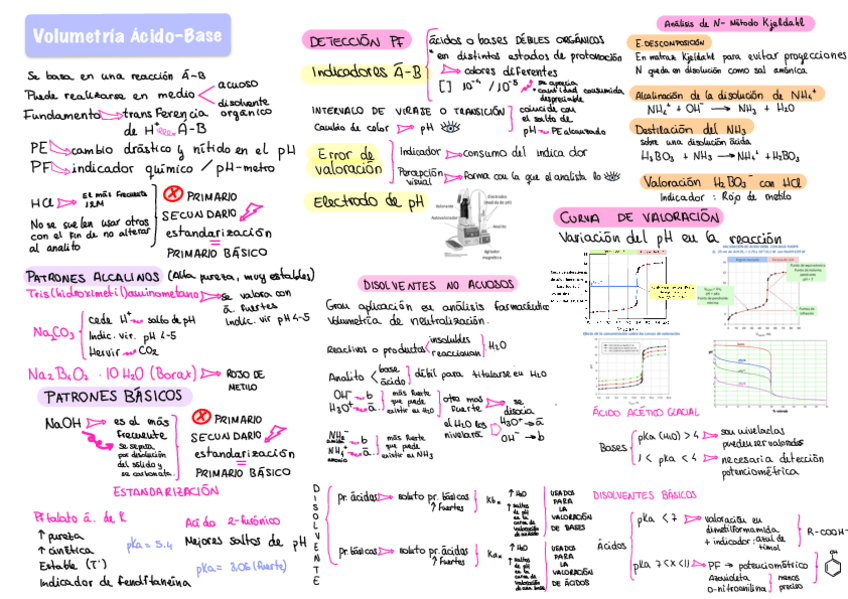 Volumetría Ácido-Base
Se basa en una reacción Ā-B
Puede realizarse en medio
acuoso
disolvente
orgánico
Fundamento transferencia
de H+ A-B
PE cambio drástico y nítido en el pH
PF indicador químico / pH-metro
HCl
el más frecuente
12M
No se suelen usar otros
con el fin de no alterar
al analito
X PRIMARIO
SECUNDARIO
estandarización
=
PRIMARIO BÁSICO
PATRONES ALCALINOS (Alta pureza, muy estables)
Tris(hidroximetil)aminometano
se valora con
ā. fuertes
Indic. vir pH 4-5
Na2CO3
cede H+ salto de pH
Indic. vir. pH 4-5
Hervir CO2
Na2B4O7 · 10H2O (Borax)
ROJO DE
METILO
PATRONES BÁSICOS
NaOH
es el más
frecuente
se separa
por disolución
del sólido y
se carbonata.
X PRIMARIO
SECUNDARIO
estandarización
=
PRIMARIO BÁSICO
ESTANDARIZACIÓN
Ftalato ā. de K
↑ pureza
↑ cinética
Estable (Tª)
Indicador de fenolftaneína
pKa = 5.4
Acido 2-furónico
Mejores saltos de pH
pKa = 3,06 (fuerte)
DETECCIÓN PF
Indicadores Ā-B
ácidos o bases DÉBLES ORGÁNICOS
* en distintos estados de protonación
colores diferentes
[ ] 10-4 / 10-5
se aprecia
cantidad consumida
despreciable
INTERVALO DE VIRAJE O TRANSICIÓN
Cambio de color pH
coincide con
el salto de
pH PE alcanzado
Error de
valoración
Indicador consumo del indicador
Percepción
visual
forma con la que el analista lo
Electrodo de pH
Valorante
Autovalorador
Electrodo
(medida de pH)
Analito
Agitador
magnético
DISOLVENTES NO ACUOSOS
Gran aplicación en análisis farmacéutico
Volumetría de neutralización.
Reactivos o producto
insolubles
reaccionan
H2O
Analito
base
ácido
débil para titularse en H2O
OH- b
H3O+ ā
más fuerte
que puede
existir en H2O
otro más
fuerte
el H2O los
nivelará
se
disocia
H3O+ ā
OH- b
NH2- b
NH4+ ā
más fuerte
que puede
existir en NH3
DISOLVENTE
pr. ácidos soluto pr. básicos
↑ fuertes
Kb
↑ H2O
↑ saltos
de pH
en la
curva de
valoración
USADOS
PARA
LA
VALORACIÓN
DE BASES
pr. básicos soluto pr. ácidos
↑ fuertes
Ka
↑ H2O
↑ saltos
de pH
en la
curva de
valoración
USADOS
PARA
LA
VALORACIÓN
DE ÁCIDOS
Análisis de N- Método Kjeldahl
E. DESCOMPOSICIÓN
En matraz Kjeldahl para evitar proyecciones
N queda en disolución como sal amónica
Alcalinación de la disolución de NH4+
NH4+ + OH- → NH3 + H2O
Destilación del NH3
sobre una disolución ácida
H3BO3 + NH3 → NH4+ + H2BO3
Valoración H2BO3- con HCl
Indicador : Rojo de metilo
CURVA DE VALORACIÓN
Variación del pH en la reacción
ÁCIDO ACÉTICO GLACIAL
Bases
pKa (H2O) > 4 son niveladas
pueden ser valoradas
1 < pKa < 4 necesaria detección
potenciométrica
DISOLVENTES BÁSICOS
Ácidos
pKa < 7 valoración en
dimetilformamida
+ indicador: azul de
timol
R-COOH
pKa 7 < x < 11 PF → potenciométrico
Azovioleta
o-nitroanilina
menos
preciso
OH